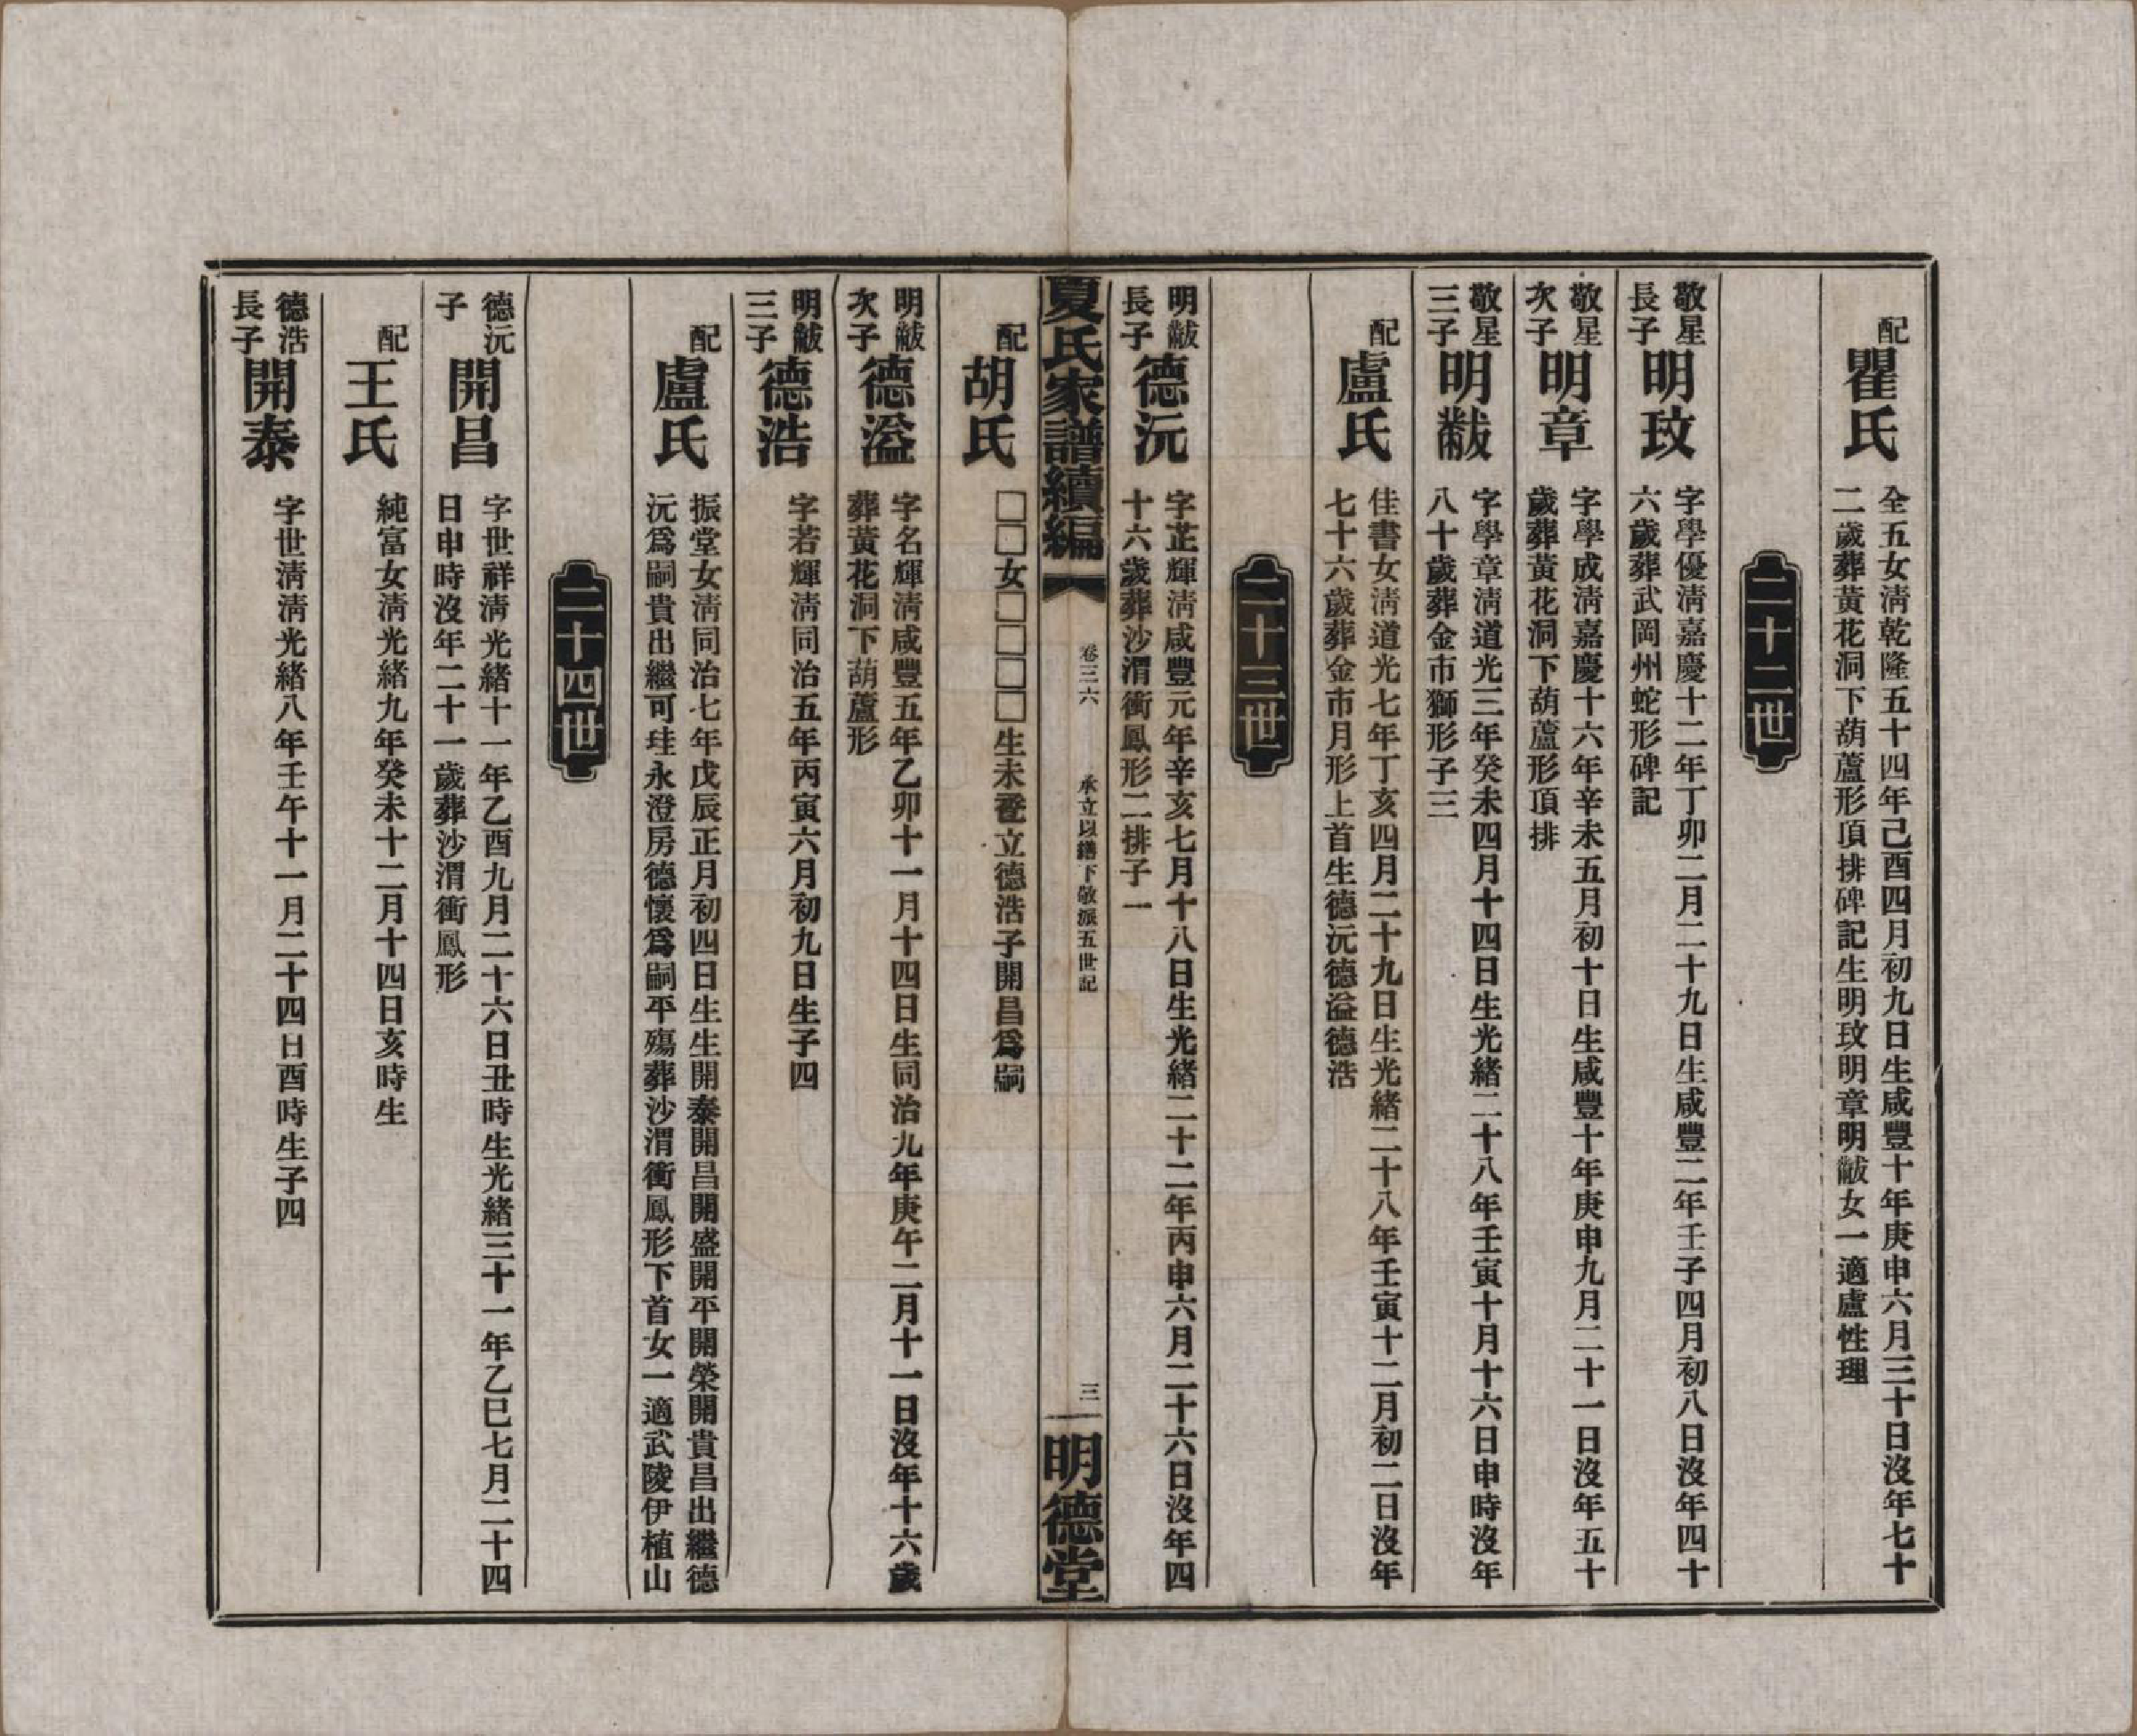 配
瞿氏
全五女淸乾隆五十四年己酉四月初九日生咸豐十年庚申六月三十日沒年七十
二歲葬黃花洞下葫蘆形頂排碑記生明玟明章明黻女一適盧性理
二十二世
敬星
長子
明玟
字學優淸嘉慶十二年丁卯二月二十九日生咸豐二年壬子四月初八日沒年四十
六歲葬武岡州蛇形碑記
敬星
次子
明章
字學成淸嘉慶十六年辛未五月初十日生咸豐十年庚申九月二十一日沒年五十
歲葬黃花洞下葫蘆形頂排
敬星
三子
明黻
字學章淸道光三年癸未四月十四日生光緒二十八年壬寅十月十六日申時沒年
八十歲葬金市獅形子三
配
盧氏
佳書女淸道光七年丁亥四月二十九日生光緒二十八年壬寅十二月初二日沒年
七十六歲葬金市月形上首生德沅德溢德浩
二十三世
明黻
長子
德沅
字芷輝淸咸豐元年辛亥七月十八日生光緒二十二年丙申六月二十六日沒年四
十六歲葬沙渭衝鳳形二排子一
夏氏家譜續編
卷三六
承立以繕下敬派五世記
三
明德堂
配
胡氏
□□女□□□□生未立德浩子開昌爲嗣
明黻
次子
德溢
字名輝淸咸豐五年乙卯十一月十四日生同治九年庚午二月十一日沒年十六歲
葬黃花洞下葫蘆形
明黻
三子
德浩
字若輝淸同治五年丙寅六月初九日生子四
配
盧氏
振堂女淸同治七年戊辰正月初四日生生開泰開昌開盛開平開榮開貴昌出繼德
沅爲嗣貴出繼可珪永澄房德懷爲嗣平殤葬沙渭衝鳳形下首女一適武陵伊植山
二十四世
德沅
子
開昌
字世祥淸光緒十一年乙酉九月二十六日丑時生光緒三十一年乙巳七月二十四
日申時沒年二十一歲葬沙渭衝鳳形
配
王氏
純富女淸光緒九年癸未十二月十四日亥時生
德浩
長子
開泰
字世淸淸光緒八年壬午十一月二十四日酉時生子四